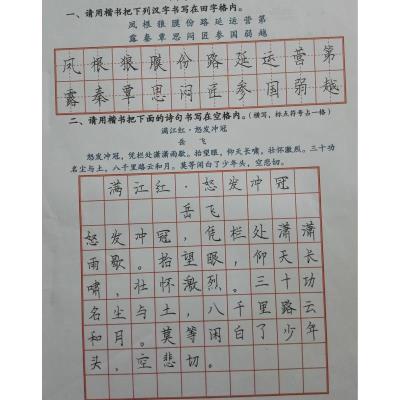 一、请用楷书把下列汉字书写在田字格内。
凤根狼膜份路延运营第
露秦章思闷匠参国弱越
凤根狼膜份路延运营第
露秦章思闷匠参国弱越
二、请用楷书把下面的诗句书写在空格内。（横写，标点符号占一格）
满江红·怒发冲冠
岳 飞
怒发冲冠，凭栏处潇潇雨歇。抬望眼，仰天长啸，壮怀激烈。三十功
名尘与土，八千里路云和月。莫等闲白了少年头，空悲切。
满江红·怒发冲冠
岳飞
怒发冲冠，凭栏处潇潇
雨歇。抬望眼，仰天长
啸，壮怀激烈。三十功
名尘与土，八千里路云
和月。莫等闲白了少年
头，空悲切。